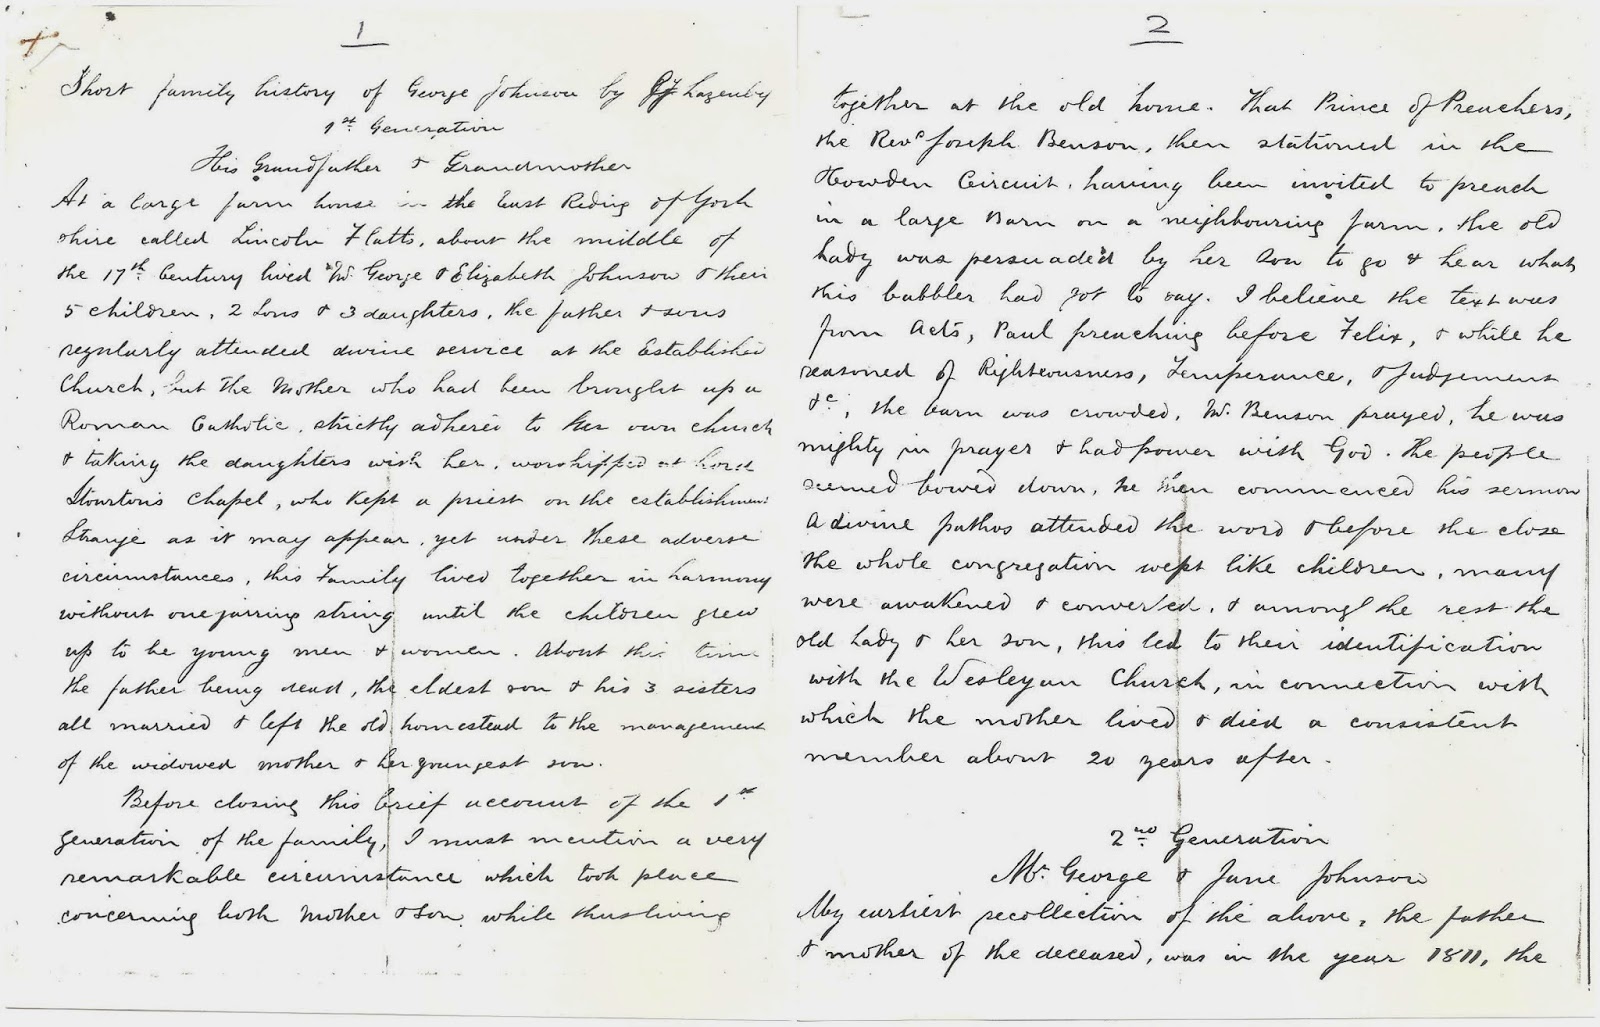 1
Short family history of George Johnson by Lazenby
1st Generation
His Grandfather & Grandmother
At a large farm house in the East Riding of York
shire called Lincoln Flatts, about the middle of
the 17th Century lived Mr. George & Elizabeth Johnson & their
5 children, 2 Sons & 3 daughters, the father & sons
regularly attended divine service at the Established
Church, but the Mother who had been brought up a
Roman Catholic, strictly adhered to her own church
& taking the daughters with her, worshipped at Lord
Stourton's Chapel, who kept a priest on the establishment
Strange as it may appear, yet under these adverse
circumstances, this Family lived together in harmony
without one jarring string until the children grew
up to be young men & women. About this time
the father being dead, the eldest son & his 3 sisters
all married & left the old homestead to the management
of the widowed mother & her youngest son.
Before closing this brief account of the 1st
generation of the family, I must mention a very
remarkable circumstance which took place
concerning both Mother & Son while thus living
2
together at the old home. That Prince of Preachers,
the Revd Joseph Benson, then stationed in the
Howden Circuit, having been invited to preach
in a large Barn on a neighbouring farm, the old
Lady was persuaded by her Son to go & hear what
this babbler had got to say. I believe the text was
from Acts, Paul preaching before Felix, & while he
reasoned of Righteousness, Temperance, & Judgement
&c, the barn was crowded, Mr. Benson prayed, he was
mighty in prayer & had power with God. the people
seemed bowed down, he then commenced his sermon
A divine pathos attended the word & before the close
the whole congregation wept like children, many
were awakened & converted, & among the rest the
old Lady & her son, this led to their identification
with the Wesleyan Church, in connection with
which the mother lived & died a consistent
member about 20 years after.
2nd Generation
Mr. George & Jane Johnson
My earliest recollection of the above, the father
& mother of the deceased, was in the year 1811, the